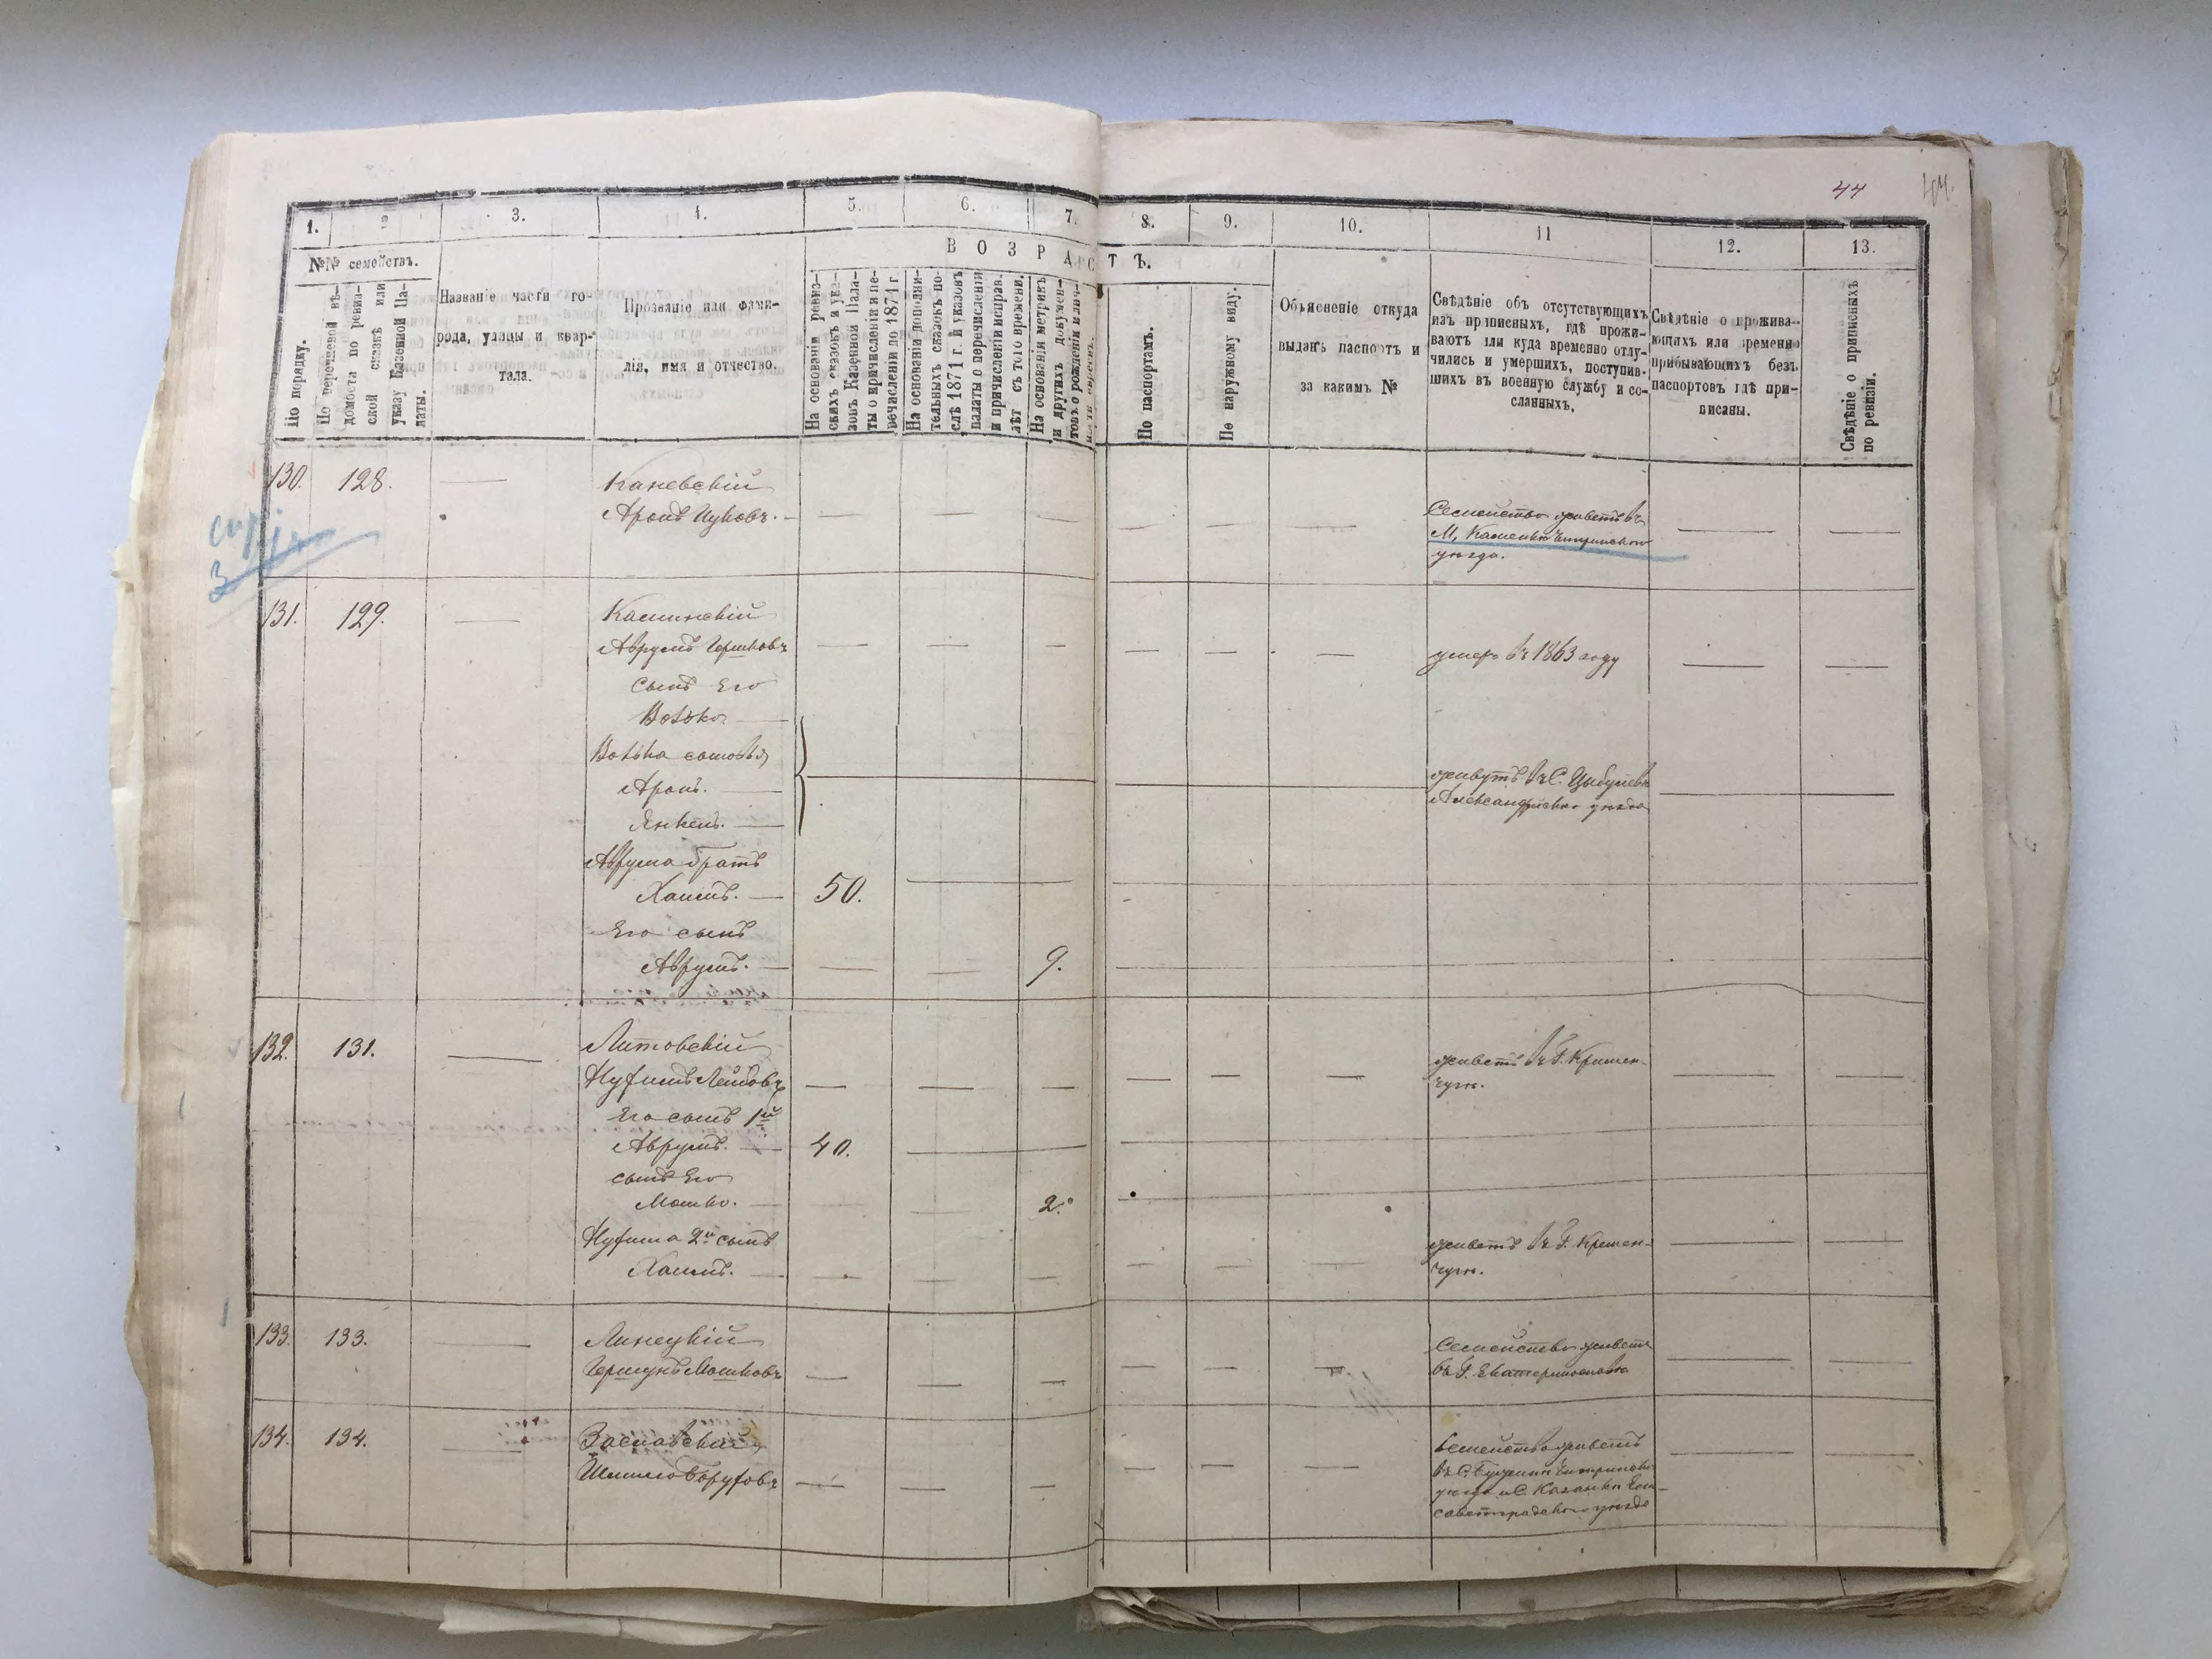 44
1. 2 3. 4. 5. 6. 7. 8. 9. 10. 11 12. 13.
№№ семействъ.
В О З Р А С Т Ъ.
По порядку.
По перечневой вѣ-
домости по ревиз-
ской сказкѣ или
указу Казенной Па-
латы.
Названіе части го-
рода, улицы и квар-
тала.
Прозваніе или фами-
лія, имя и отчество.
На основаніи ревиз-
скихъ сказокъ и ука-
зовъ Казенной Пала-
ты о причисленіи и пе-
речисленіи до 1871 г.
На основаніи дополни-
тельныхъ сказокъ по-
слѣ 1871 г. и указовъ
палаты о перечисленіи
и причисленіи исправ.
лѣт съ того времени.
На основаніи метрикъ
и другихъ докумен-
товъ о рожденіи
По паспортамъ.
По наружному виду.
Объясненіе откуда
выданъ паспортъ и
за какимъ №
Свѣдѣніе объ отсутствующихъ
изъ приписныхъ, гдѣ прожи-
ваютъ или куда временно отлу-
чились и умершихъ, поступив-
шихъ въ военную службу и со-
сланныхъ.
Свѣдѣніе о прожива-
ющихъ или временно
прибывающихъ безъ
паспортовъ гдѣ при-
писаны.
Свѣдѣніе о приписныхъ
по ревизіи.
130. 128. Каневскій
Аронъ Ицковъ.
Семейство живетъ въ
М. Каменкѣ Чигринскаго
уѣзда.
3
131. 129. Каминскій
Аврумъ Гершковъ
умеръ въ 1863 году
сынъ Его
Волько
Волька сыновья
Аронъ.
Янкель.
живутъ въ С. Цыбулевѣ
Александрійскаго уѣзда
Аврума братъ
Хаимъ. 50.
Его сынъ
Аврумъ. 9.
132. 131. Литовскій
Нухимъ Лейбовъ
живетъ въ Г. Кремен-
чугѣ.
Его сынъ 1й
Аврумъ. 40.
сынъ Его
Мошко. 2.
Нухима 2й сынъ
Хаимъ.
живетъ въ Г. Кремен-
чугѣ.
133. 133. Линецкій
Гершунъ Мошковъ
Семейство живетъ
въ Г. Екатеринославѣ
134. 134. Заславскій
Шмилю Боруховъ
Семейство живетъ
въ С. Чигринскаго
уѣзда и С. Казанкѣ Ели-
саветградскаго уѣзда